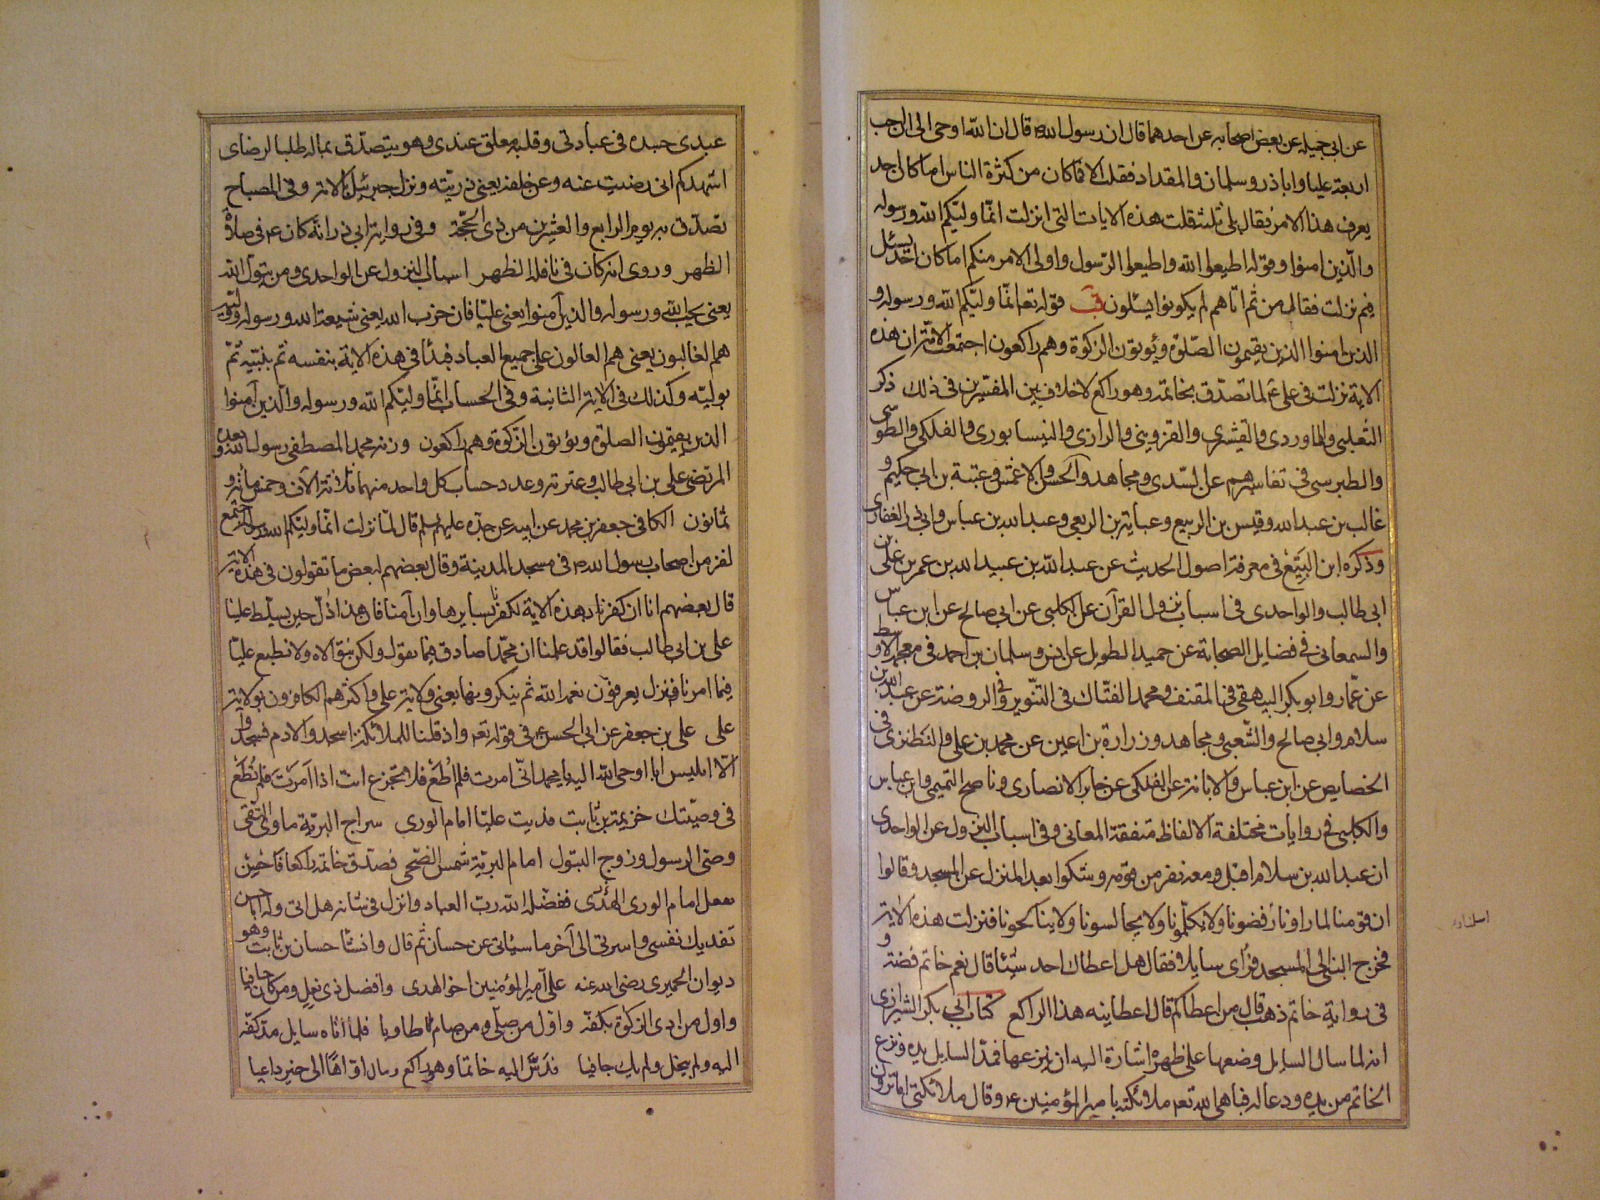 عن ابي جميله عن بعض اصحابه عن احدهما قال ان رسول الله ص قال ان الله اوحى الى ان احب
اربعة عليا واباذر وسلمان والمقداد فقلت الا فما كان من كثرة الناس اما كان احد
يعرف هذا الامر فقال بلى ثلثة قلت هذه الايات التى انزلت انما وليكم الله ورسوله
والذين امنوا وقوله اطيعوا الله واطيعوا الرسول واولى الامر منكم اما كان احد يسئل
فيم نزلت فقال من ثم اتاهم لم يكونوا يسئلون قب قوله تعا انما وليكم الله ورسوله و
الذين امنوا الذين يقيمون الصلوة ويؤتون الزكوة وهم راكعون اجتمعت الامة ان هذه
الاية نزلت في على ع لما تصدق بخاتمه وهو راكع لا خلاف بين المفسرين في ذلك ذكر
الثعلبي والماوردي والقشيري والقزويني والرازي والنيسابوري والفلكي والطوسي
والطبرسي في تفاسيرهم عن السدي ومجاهد والحسن والاعمش وعتبة بن ابي حكيم و
غالب بن عبد الله وقيس بن الربيع وعباية بن الربعي وعبد الله بن عباس وابي ذر الغفاري
وذكره ابن البيع في معرفة اصول الحديث عن عبد الله بن عبيد الله بن عمر بن على بن
ابي طالب والواحدي في اسباب نزول القرآن عن الكلبي عن ابي صالح عن ابن عباس
والسمعاني في فضايل الصحابة عن حميد الطويل عن انس وسلمان بن احمد في معجمه الاوسط
عن عمار وابو بكر البيهقي في المقنف ومحمد الفتاك في التنوير وفي الروضة عن عبد الله بن
سلام وابي صالح والشعبي ومجاهد وزرارة بن اعين عن محمد بن على والنطنزي في
الخصايص عن ابن عباس والابانة عن الفلكي عن جابر الانصاري وناصح التميمي وابن عباس
والكلبي في روايات مختلفة الالفاظ متفقة المعاني وفي اسباب النزول عن الواحدي
ان عبد الله بن سلام اقبل ومعه نفر من قومه وشكوا بعد المنزل عن المسجد وقالوا
ان قومنا لما راونا رفضونا ولا يكلمونا ولا يجالسونا ولا يناكحونا فنزلت هذه الاية
فخرج النبي الى المسجد فرأى سايلا فقال هل اعطاك احد شيئا قال نعم خاتم فضة و
في رواية خاتم ذهب قال من اعطاكه قال اعطانيه هذا الراكع كتاب ابي بكر الشيرازي
انه لما سال السايل وضعها على ظهره اشارة اليه ان ينزعها فمد السايل يده ونزع
الخاتم من يده ودعا له فباهى الله تعا ملائكته بامير المؤمنين ع وقال ملائكتى اما ترون
عبدي جسده في عبادتى وقلبه معلق عندى وهو يتصدق بماله طلبا لرضاى
اشهدكم انى رضيت عنه وعن خلفه يعنى ذريته ونزل جبرئيل بالاية وفي المصباح
تصدق به يوم الرابع والعشرين من ذى الحجة وفي رواية ابي ذر انه كان ع في صلاة
الظهر وروى انه كان في نافلة الظهر اسباب النزول عن الواحدى ومن يتول الله
يعنى يحب الله ورسوله والذين آمنوا يعنى عليا فان حزب الله يعنى شيعة الله ورسوله ووليه
هم الغالبون يعنى هم العالون على جميع العباد فبدأ في هذه الاية بنفسه ثم بنبيه ثم
بوليه وكذلك في الاية الثانية وفي الحساب انما وليكم الله ورسوله والذين آمنوا
الذين يقيمون الصلوة ويؤتون الزكوة وهم راكعون وزنه محمد المصطفى رسول الله وبعده
المرتضى على بن ابي طالب وعترته وعدد حساب كل واحد منهما ثلاثة الاف وخمس مائة و
ثمانون الكافي جعفر بن محمد عن ابيه عن جده عليهم السلم قال لما نزلت انما وليكم الله اجتمع
نفر من اصحاب رسول الله ص في مسجد المدينة وقال بعضهم لبعض ما تقولون في هذه الاية
قال بعضهم انا ان كفرنا بهذه الاية لكفرنا بسايرها وان آمنا فان هذا ذل حين يسلط علينا
على بن ابي طالب فقالوا قد علمنا ان محمدا صادق فيما يقول ولكن نتولاه ولا نطيع عليا
فيما امرنا فنزل يعرفون نعمة الله ثم ينكرونها يعنى ولاية على واكثرهم الكافرون بولاية
على على بن جعفر عن ابي الحسن ع في قوله تعا واذ قلنا للملائكة اسجدوا لادم فسجدوا
الا ابليس ابى اوحى الله اليه يا محمد انى امرت فلم اطع فلا تجزع انت اذا امرت فلم تطع
في وصيتك خزيمة بن ثابت فديت عليا امام الورى سراج البرية ماوى التقى
وصى الرسول وزوج البتول امام البرية شمس الضحى تصدق خاتمه راكعا فاحسن
بفعل امام الورى الهدى ففضله الله رب العباد وانزل في شانه هل اتى وله ايضا
تفديك نفسى واسرتى الى آخر ما سياتى عن حسان ثم قال وانشا حسان بن ثابت وهو
ديوان الحميرى رضى الله عنه على امير المؤمنين اخو الهدى وافضل ذى نعل ومن كان حافيا
واول من ادى الزكوة بكفه واول من صلى ومن صام طاويا فلما اتاه سايل مد كفه
اليه ولم يبخل ولم يك جافيا فدس اليه خاتما وهو راكع وما زال اواها الى الخير داعيا